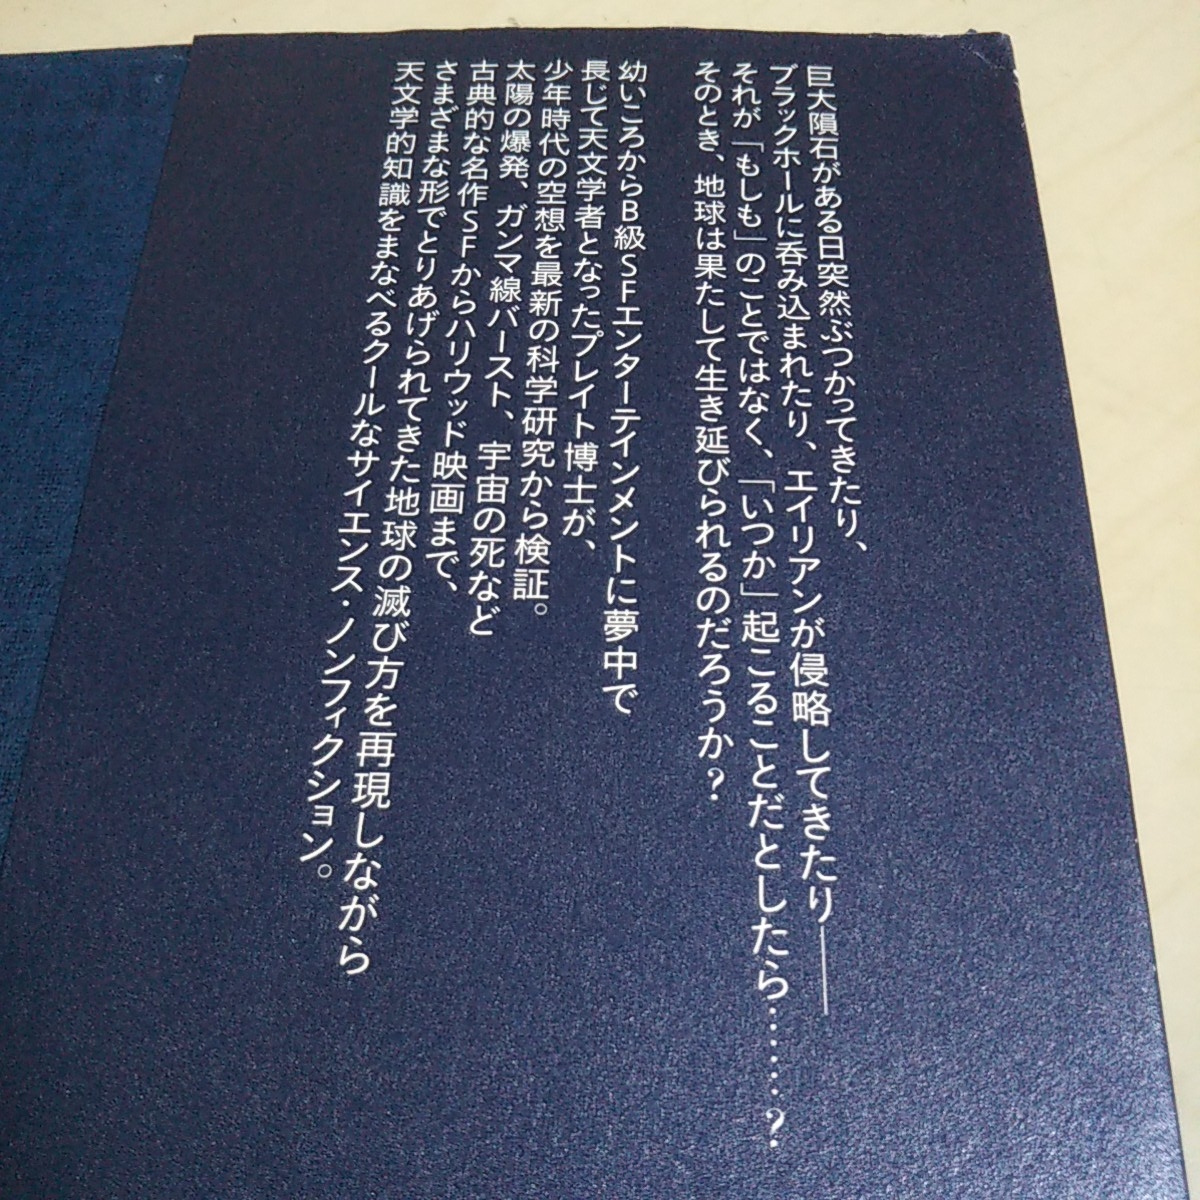 巨大隕石がある日突然ぶつかってきたり、
ブラックホールに呑み込まれたり、エイリアンが侵略してきたり――
それが「もしも」のことではなく、「いつか」起こることだとしたら……？
そのとき、地球は果たして生き延びられるのだろうか？
幼いころからB級SFエンターテインメントに夢中で
長じて天文学者となったプレイト博士が、
少年時代の空想を最新の科学研究から検証。
太陽の爆発、ガンマ線バースト、宇宙の死など
古典的な名作SFからハリウッド映画まで、
さまざまな形でとりあげられてきた地球の滅び方を再現しながら
天文学的知識をまなべるクールなサイエンス・ノンフィクション。